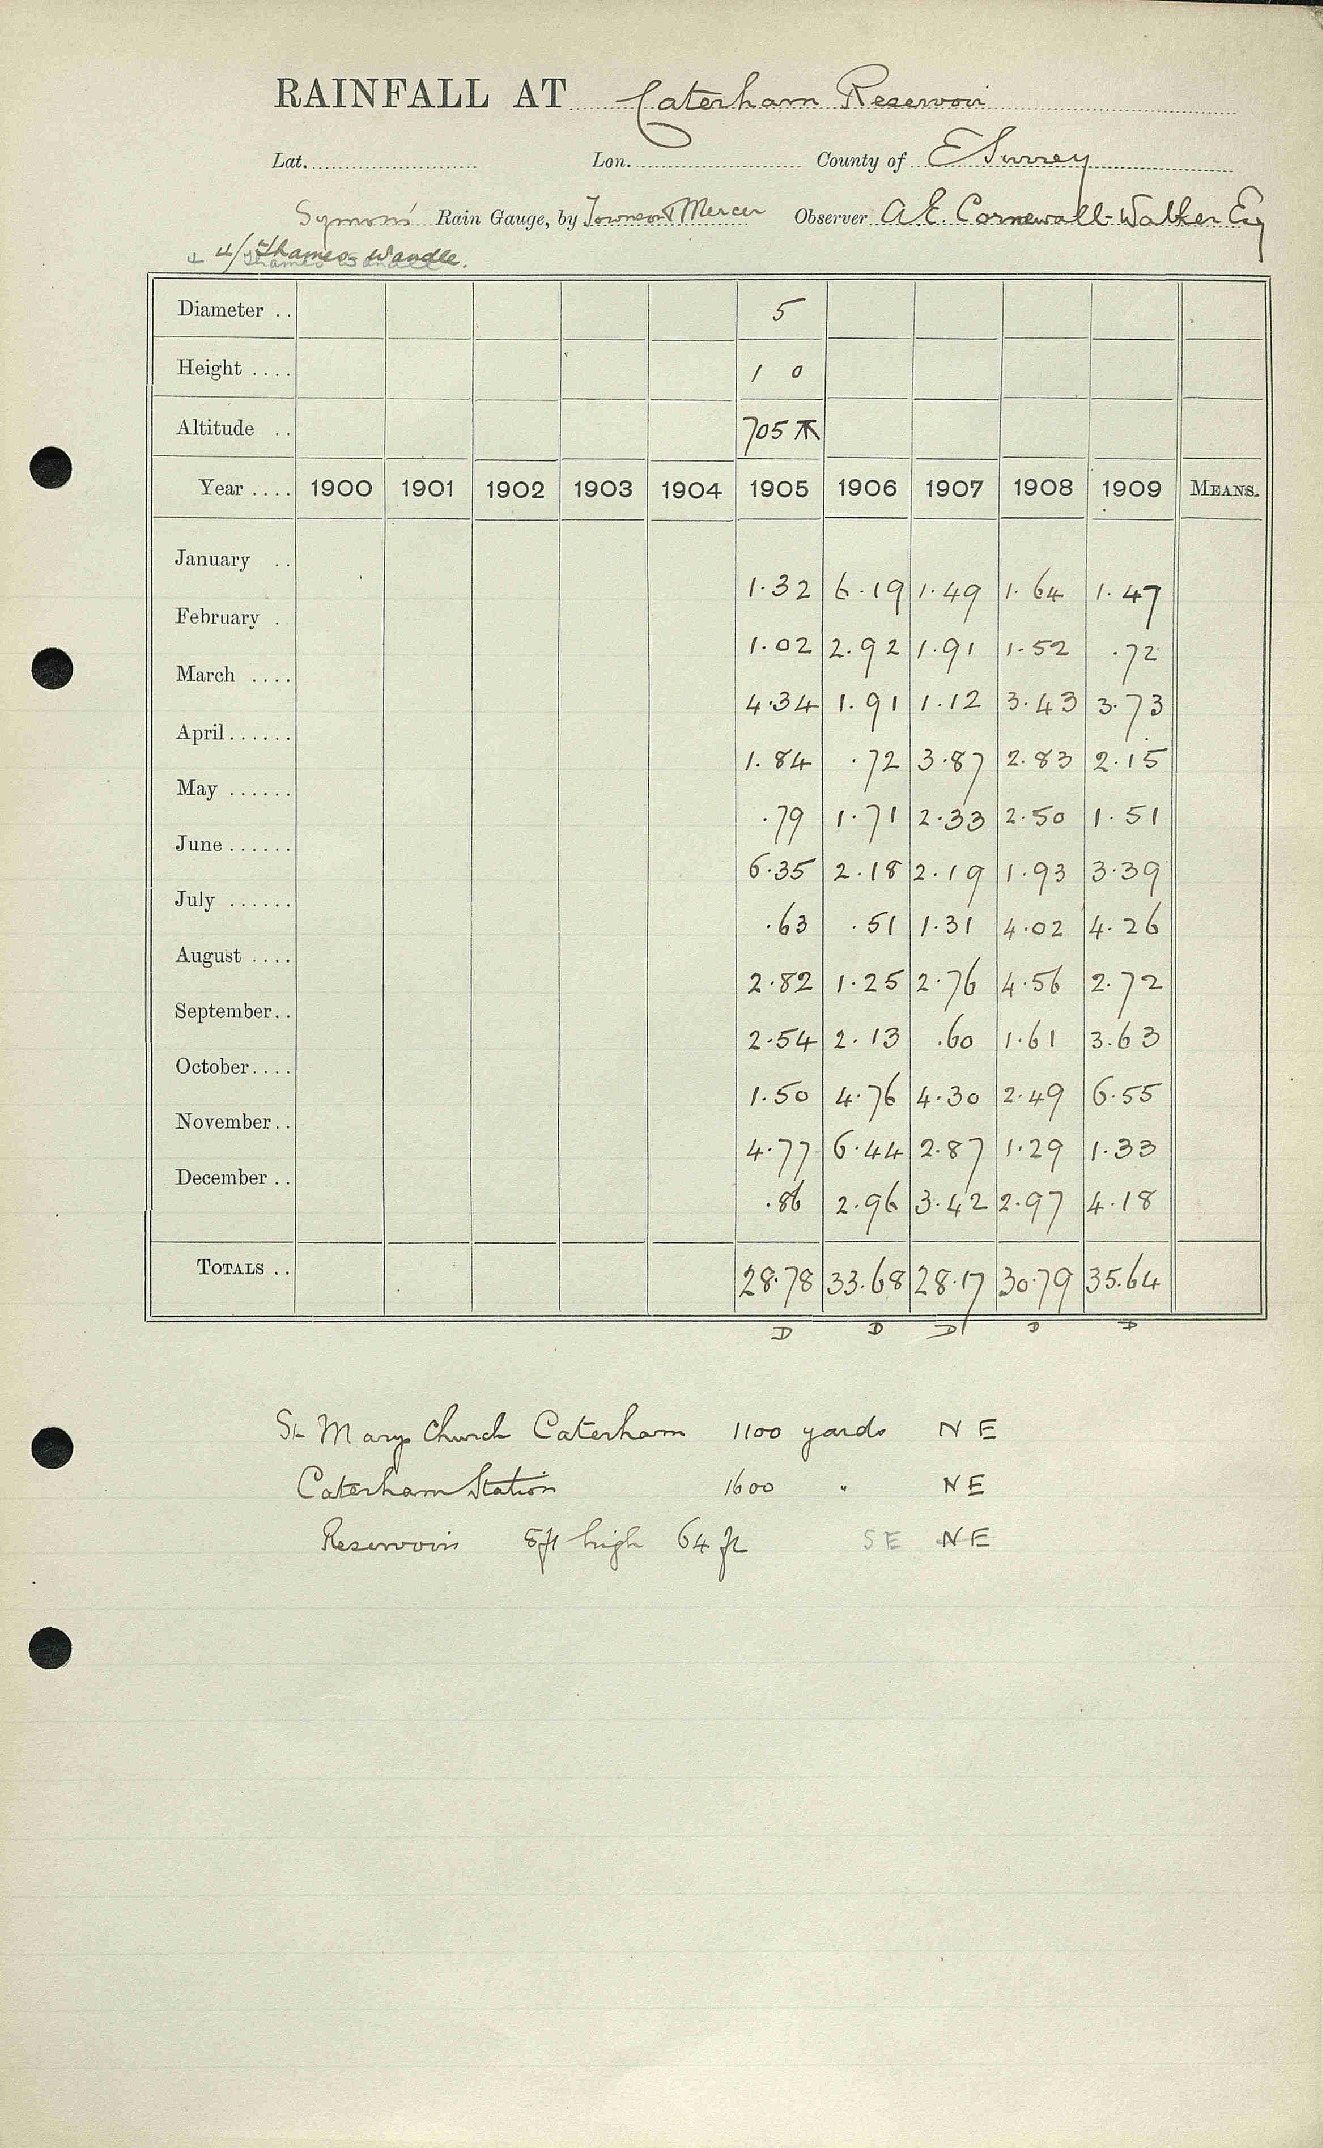 RAINFALL AT Caterham Reservoir
Lat. Lon. County of E Surrey
Symons' Rain Gauge, by Townson & Mercer Observer A.E. Cornewall-Walker Esq
4/ Thames Wandle.
Diameter .. 5
Height .... 1 0
Altitude .. 705
Year .... 1900 1901 1902 1903 1904 1905 1906 1907 1908 1909 MEANS.
January .. 1.32 6.19 1.49 1.64 1.47
February . 1.02 2.92 1.91 1.52 .72
March .... 4.34 1.91 1.12 3.43 3.73
April...... 1.84 .72 3.87 2.83 2.15
May ...... .79 1.71 2.33 2.50 1.51
June ...... 6.35 2.18 2.19 1.93 3.39
July ...... .63 .51 1.31 4.02 4.26
August .... 2.82 1.25 2.76 4.56 2.72
September.. 2.54 2.13 .60 1.61 3.63
October.... 1.50 4.76 4.30 2.49 6.55
November.. 4.77 6.44 2.87 1.29 1.33
December .. .86 2.96 3.42 2.97 4.18
TOTALS .. 28.78 33.68 28.17 30.79 35.64
D D D D D
St Marys Church Caterham 1100 yards N E
Caterham Station 1600 " N E
Reservoir 8ft high 64 ft SE NE